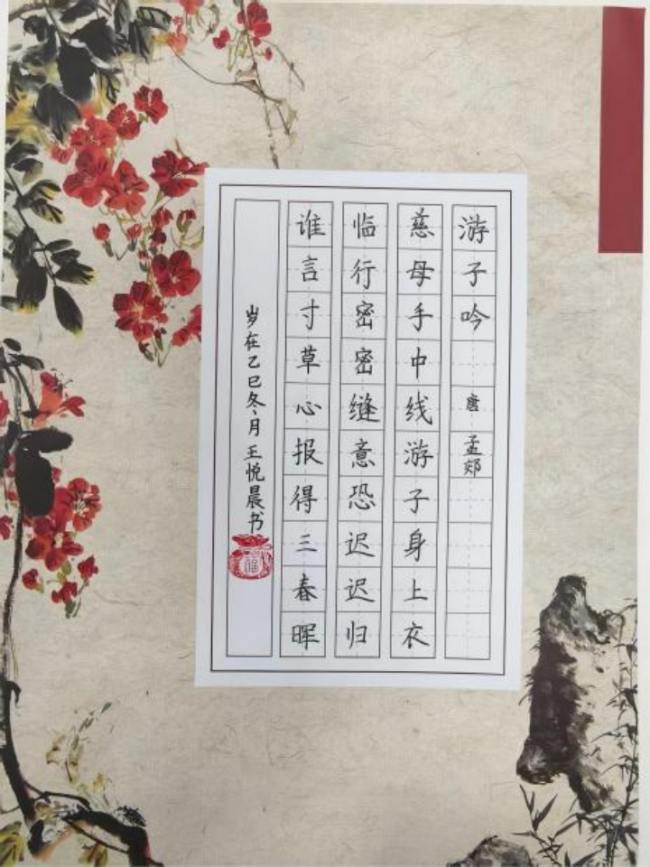 游子吟 唐 孟郊
慈母手中线游子身上衣
临行密密缝意恐迟迟归
谁言寸草心报得三春晖
岁在乙巳冬月 王悦晨书
福